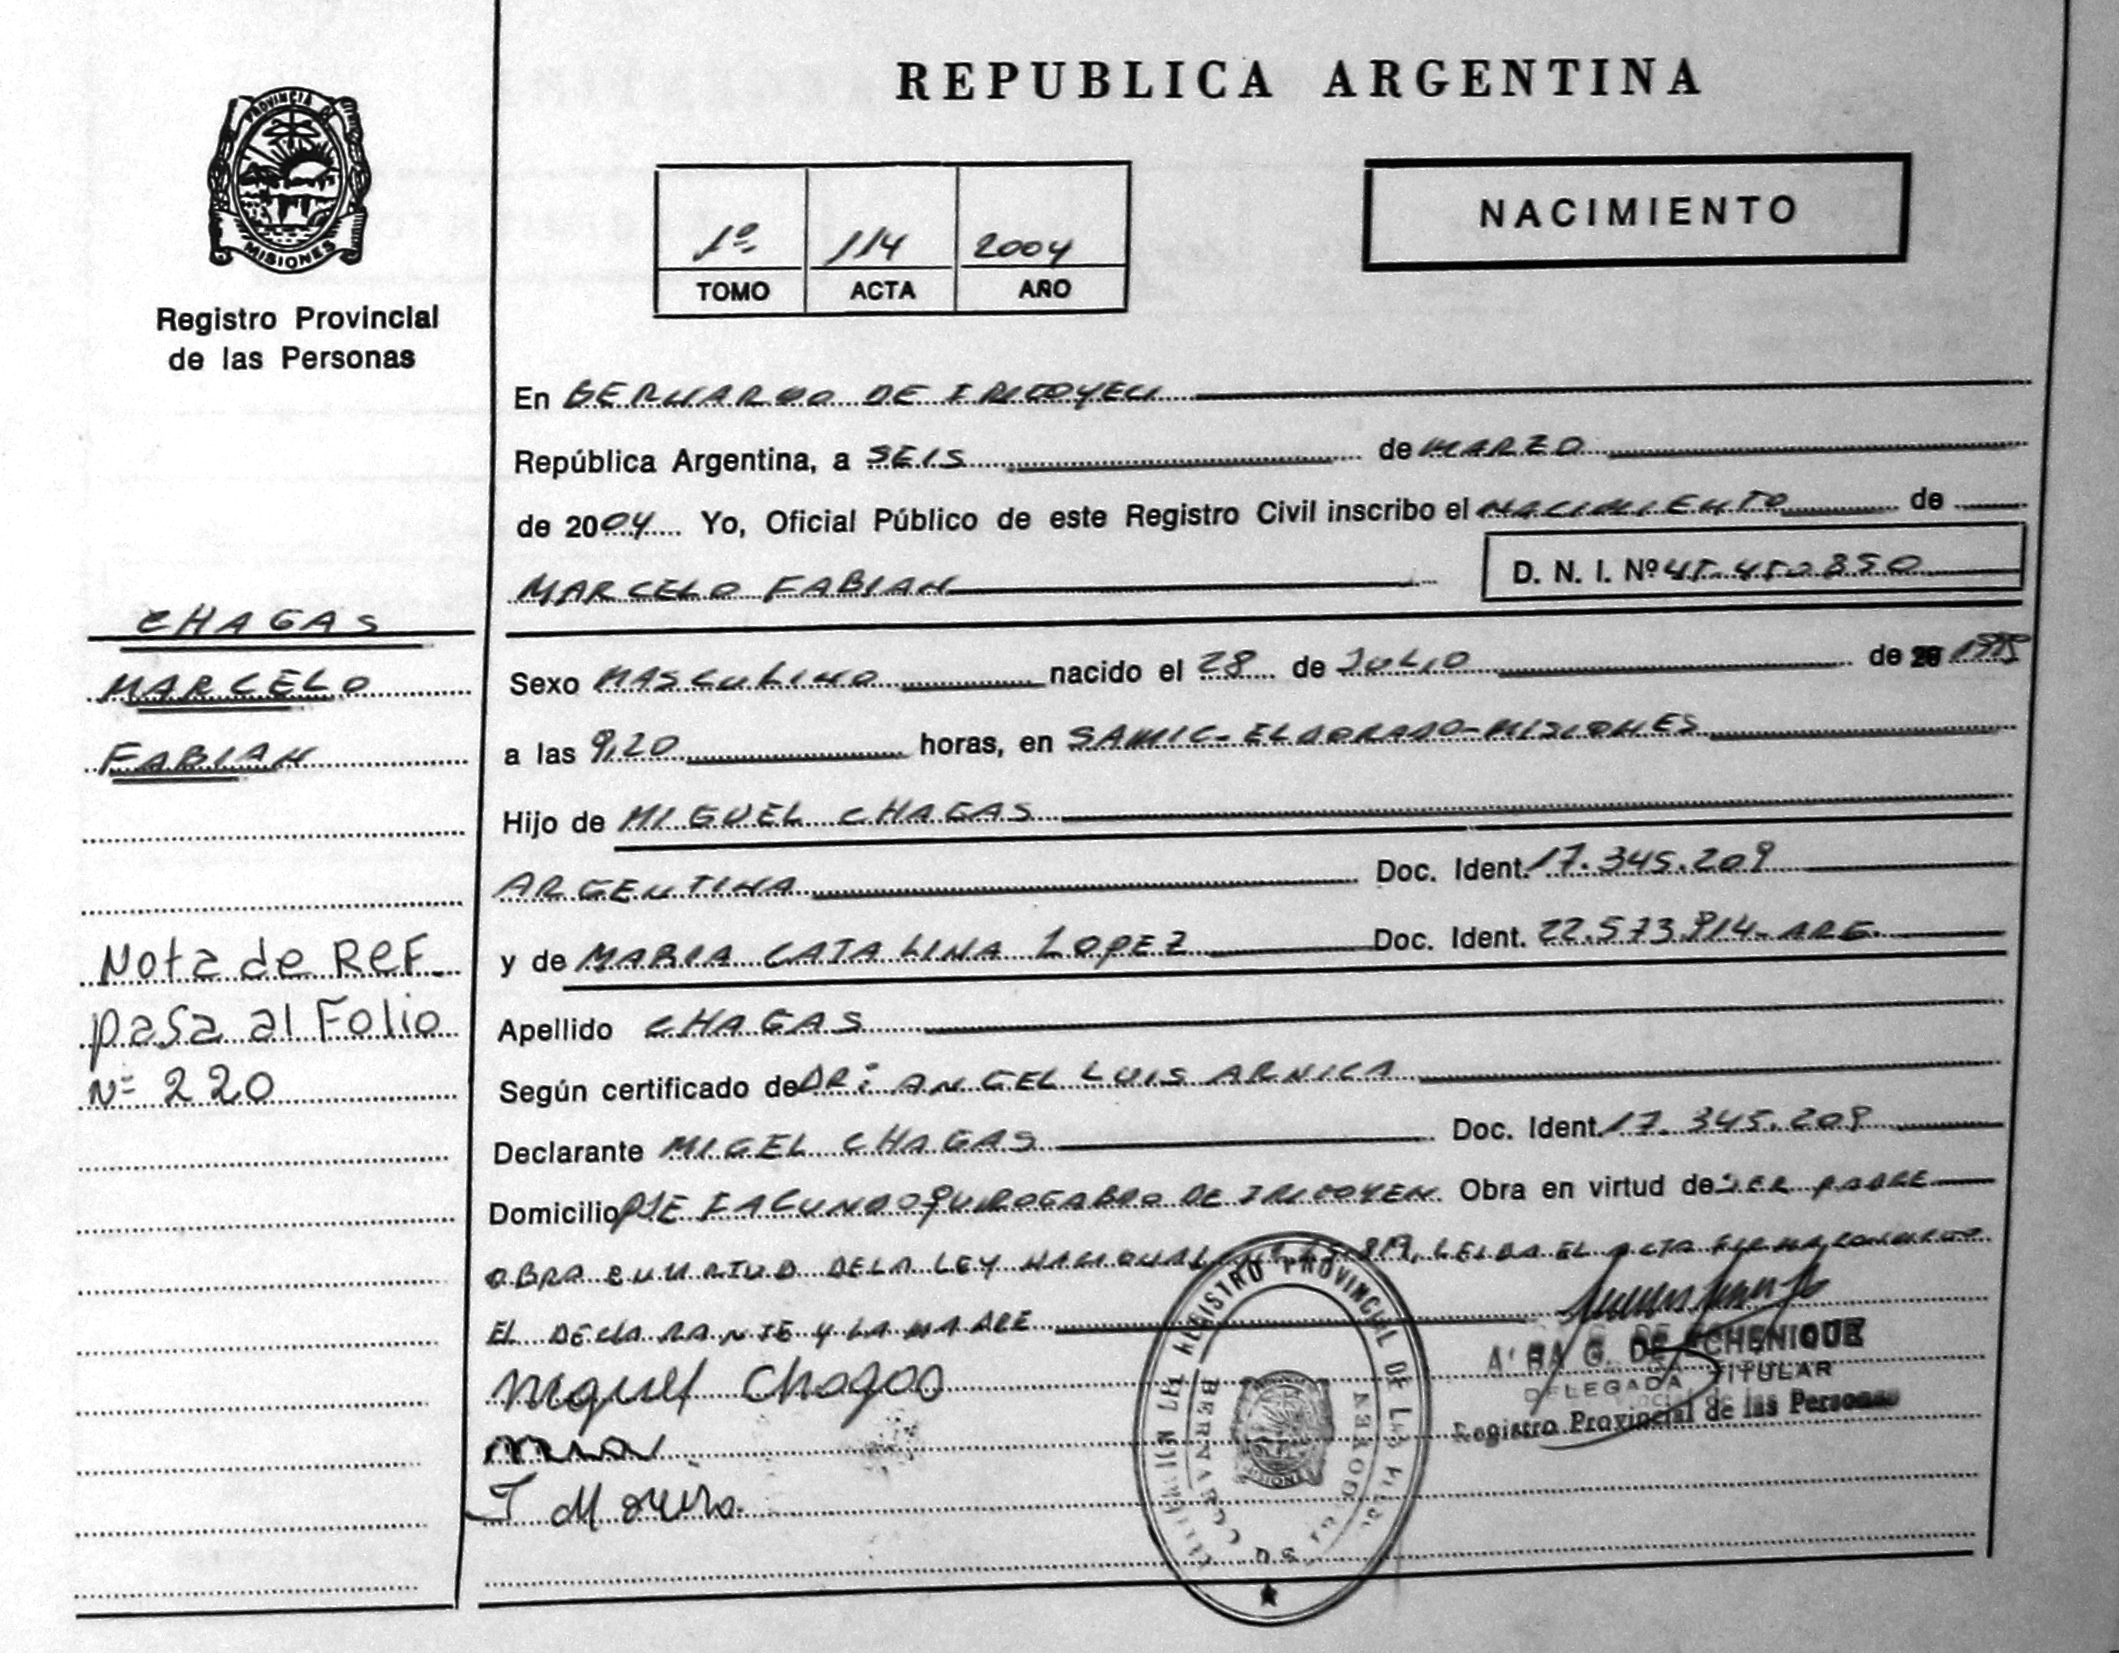 REPUBLICA ARGENTINA
PROVINCIA DE
MISIONES
Registro Provincial
de las Personas
1º 114 2004
TOMO ACTA AÑO
NACIMIENTO
En BERNARDO DE IRIGOYEN
República Argentina, a SEIS de MARZO
de 2004 Yo, Oficial Público de este Registro Civil inscribo el NACIMIENTO de
MARCELO FABIAN D. N. I. Nº 45.450.850
CHAGAS
MARCELO
FABIAN
Sexo MASCULINO nacido el 28 de JULIO de 20 1995
a las 9,20 horas, en SAMIC-ELDORADO-MISIONES
Hijo de MIGUEL CHAGAS
ARGENTINA Doc. Ident. 17.345.209
y de MARIA CATALINA LOPEZ Doc. Ident. 22.573.914-ARG.
Nota de REF.
pasa al Folio
Nº 220
Apellido CHAGAS
Según certificado de DR: ANGEL LUIS ARNICA
Declarante MIGEL CHAGAS Doc. Ident. 17.345.209
Domicilio PJE FACUNDO QUIROGA BDO DE IRIGOYEN. Obra en virtud de SER PADRE
OBRA EN VIRTUD DE LA LEY NACIONAL Nº 25.819, LEIDA EL ACTA FIRMA CONMIGO
EL DECLARANTE Y LA MADRE
Miguel Chagas
G. DE ECHENIQUE
DELEGADA TITULAR
Registro Provincial de las Personas
REGISTRO PROVINCIAL DE LAS
BERNARDO